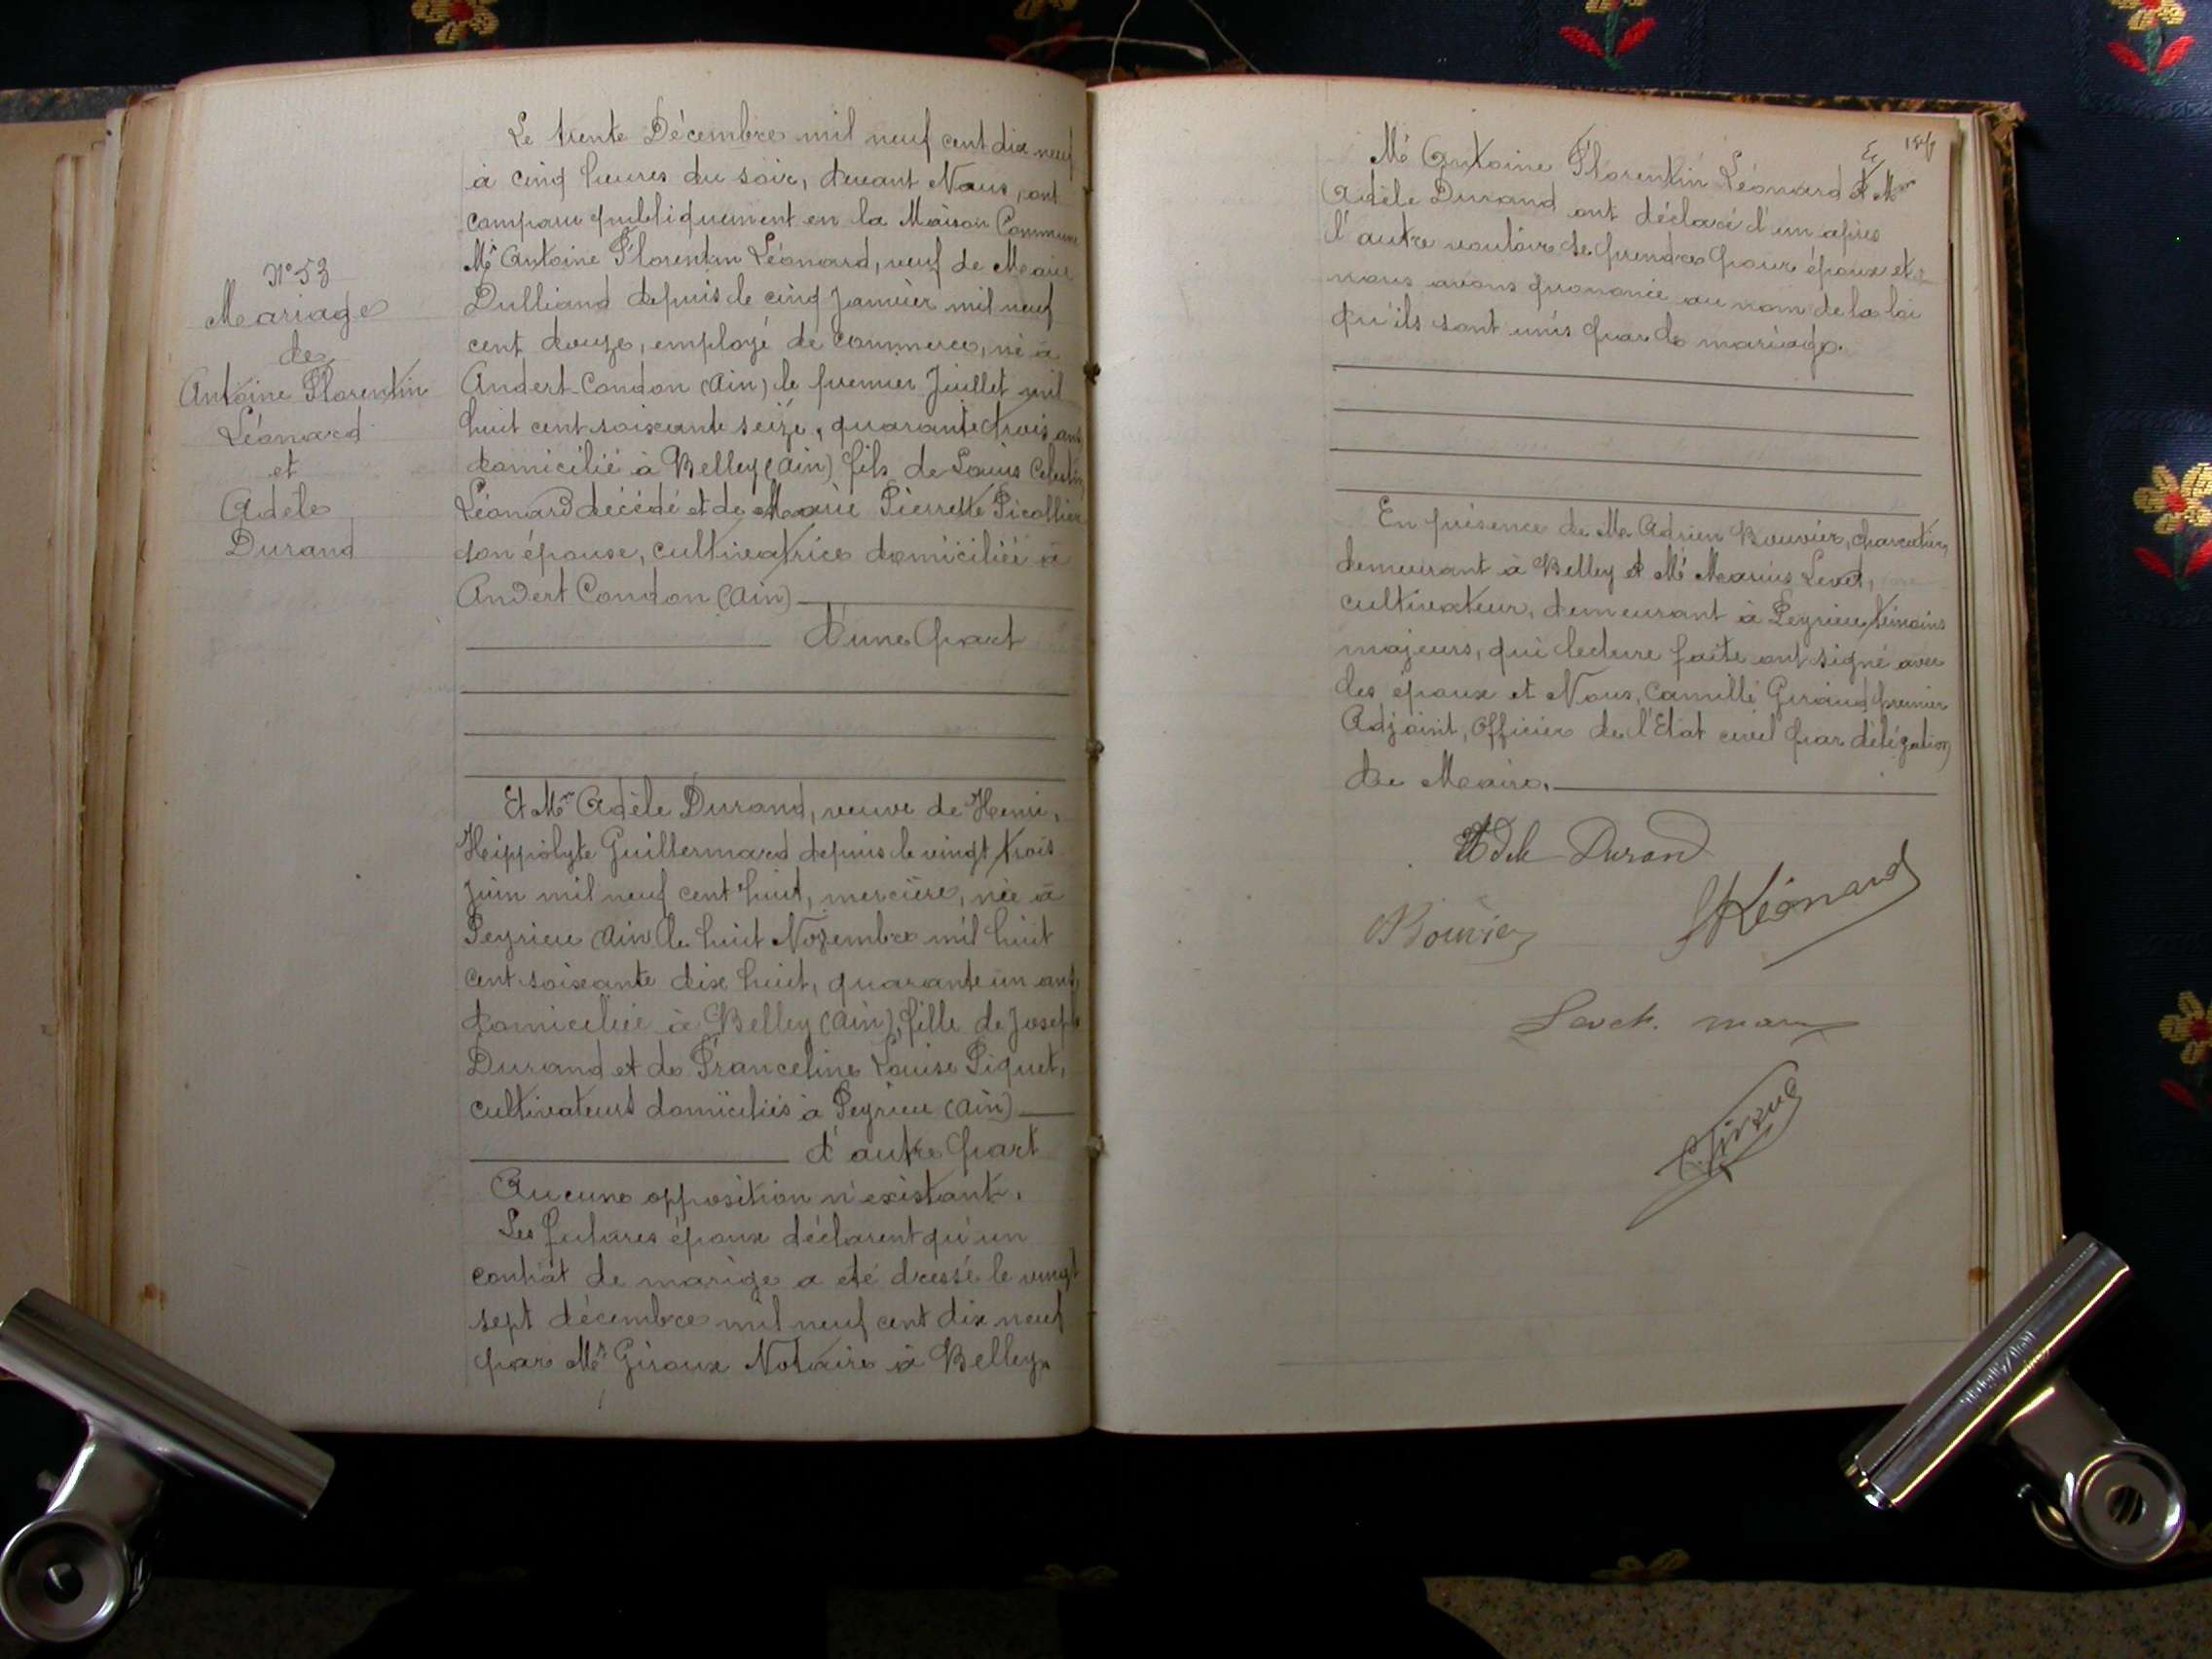 N° 53
Mariage
de
Antoine Florentin
Léonard
et
Adèle
Durand
Le trente Décembre mil neuf cent dix neuf
à cinq heures du soir, devant Nous, ont
comparu publiquement en la Maison Commune
Mr Antoine Florentin Léonard, veuf de Marie
Dulliand depuis le cinq Janvier mil neuf
cent douze, employé de commerce, né à
Andert-Condon (Ain) le premier Juillet mil
huit cent soixante seize, quarante trois ans
domicilié à Belley (Ain) fils de Louis Célestin
Léonard décédé et de Marie Pierrette Picollier
son épouse, cultivatrice domiciliée à
Andert Condon (Ain)
d'une part
Et Me Adèle Durand, veuve de Henri,
Hippolyte Guillermard depuis le vingt trois
Juin mil neuf cent huit, mercière, née à
Peyrieu (Ain) le huit Novembre mil huit
cent soixante dix huit, quarante un ans,
domiciliée à Belley (Ain), fille de Joseph
Durand et de Franceline Louise Piquet,
cultivateurs domiciliés à Peyrieu (Ain)
d'autre part
Aucune opposition n'existant.
Les futures époux déclarent qu'un
contrat de marige a été dressé le vingt
sept décembre mil neuf cent dix neuf
par Me Giroux Notaire à Belley.
Mr Antoine Florentin Léonard et Me
Adèle Durand ont déclaré l'un après
l'autre vouloir se prendre pour époux et
nous avons prononcé au nom de la loi
qu'ils sont unis par le mariage.
En présence de Mr Adrien Bouvier, charcutier,
demeurant à Belley et Mr Marius Levet,
cultivateur, demeurant à Peyrieu, témoins
majeurs, qui lecture faite ont signé avec
les époux et Nous, Camille Giraud premier
Adjoint, Officier de l'Etat civil par délégation
du Maire.
Adele Durand
Léonard
Bouvier
Levet
C. Giraud